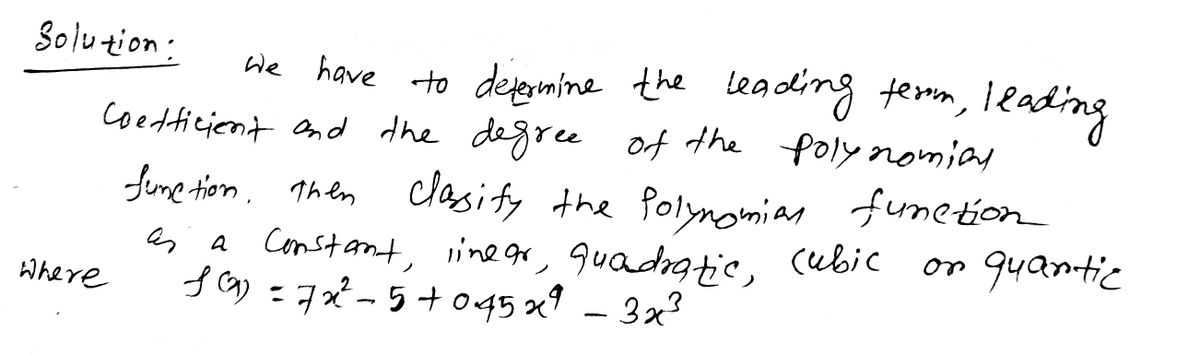 Solution:
We have to determine the leading term, leading
Coefficient and the degree of the polynomial
function. Then classify the Polynomial function
as a Constant, linear, quadratic, cubic or quartic
where f(x) = 7x² - 5 + 0.45x⁴ - 3x³